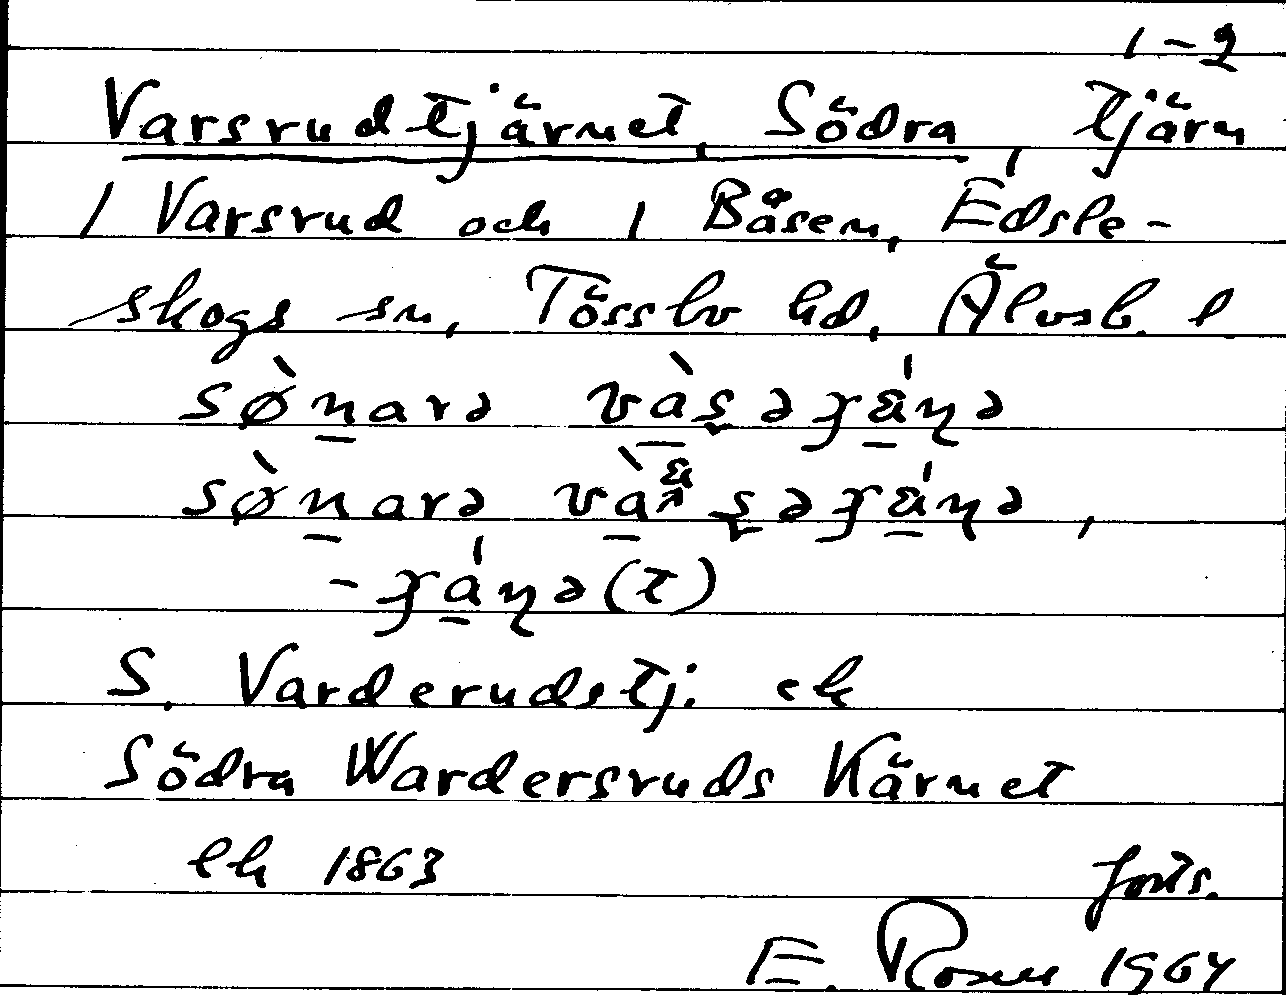 1-2
Varsrudtjärnet, Södra, tjärn
1 Varsrud och 1 Båsen, Edsle-
skogs sn, Tössbo hd, Älvsb. l
sø̀narə và̱ʂəχä́ɳə
sø̀narə và̱ʂəχä́ɳə,
-χáɳə(t)
S. Varderudstj. ek
Södra Wardersruds Kärnet
lh 1863
forts.
E. Rosen 1964